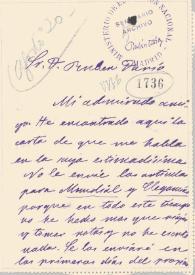 MINISTERIO DE EDUCACIÓN NACIONAL
SEMINARIO
ARCHIVO
Rubén Darío
1736
1736
Sr. D. Ruben Dario
Mi admirado ami
go: He encontrado aqui la
carta de que me habla
en la suya estimadísima
No le envié las noticias
para Mundial y Elegancias
porque en todo este tiempo
no he hecho mas que viajar
y tomar notas y no he escrito
nada. Se las enviaré en
los primeros dias del proxi